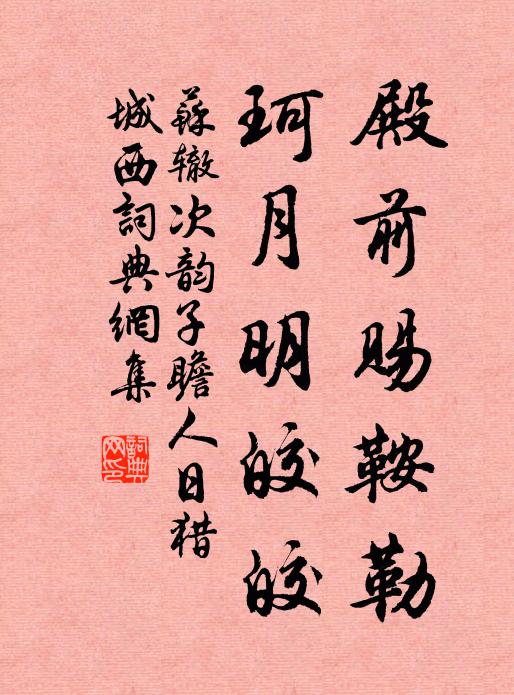 殿前賜鞍勒
珂月明皎皎
蘇辙次韵子瞻人日猎
城西詞典網集
詞典网印